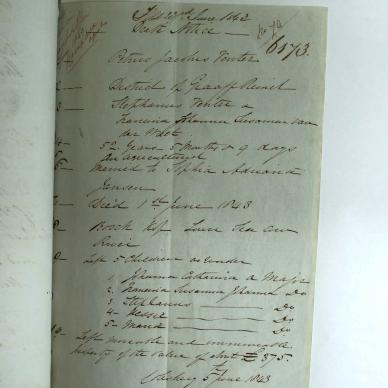 June 1843
No 70
Death Notice
6173.
Petrus Jacobus Venter
2 — District of Graaff Reinet
3 — Stephanus Venter &
Francina Johanna Susanna van
der Walt.
4 — 52 Years 5 Months & 9 days
An agriculturist
Married to Sophia Adriana
Jansen
Died 1st June 1843
8 — Kop Sea Cow
River
9 — Left 5 Children as under
1. Johanna Catharina a Major
2. Francina Susanna Johanna Do
3. Stephanus — Do
4 — Hessie — Do
5 — Maria — Do
10 — Left movable and immovable
property of the value of about £375.
5th June 1843